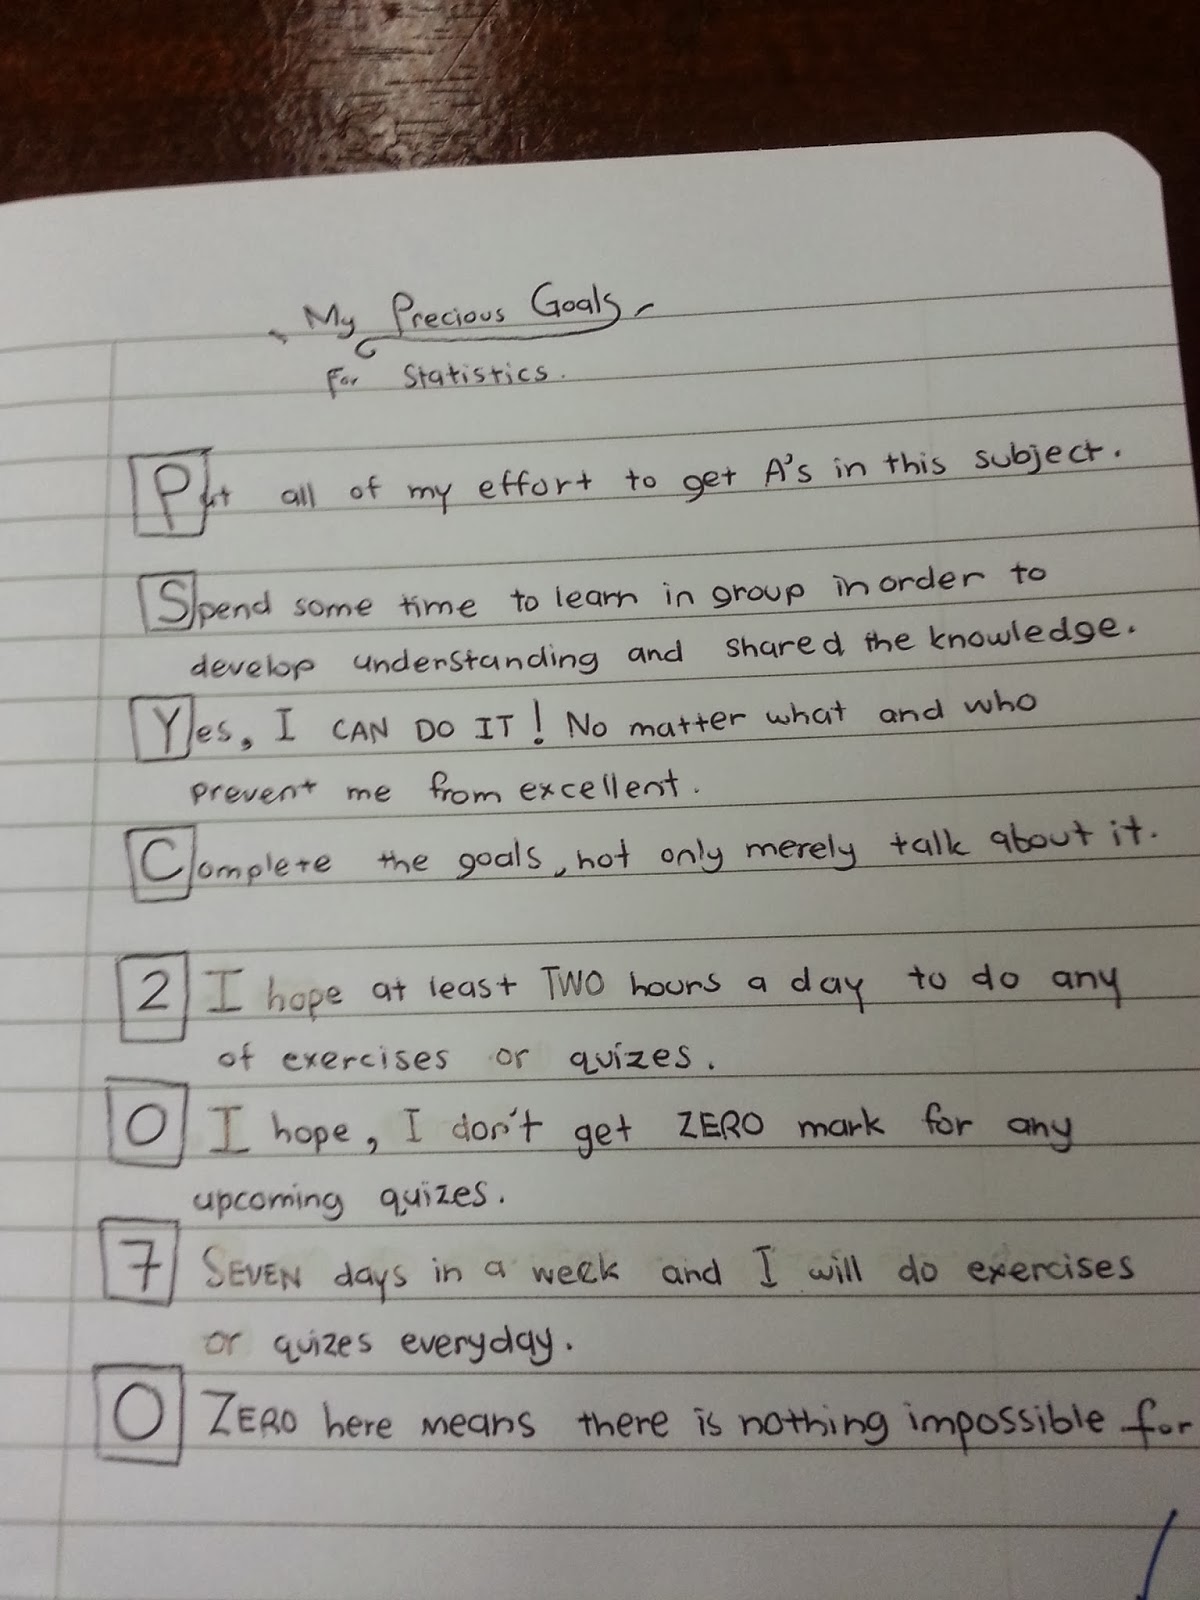 My Precious Goals
For Statistics.
Put all of my effort to get A's in this subject.
Spend some time to learn in group in order to
develop understanding and shared the knowledge.
Yes, I CAN DO IT! No matter what and who
prevent me from excellent.
Complete the goals, not only merely talk about it.
2 I hope at least TWO hours a day to do any
of exercises or quizes.
0 I hope, I don't get ZERO mark for any
upcoming quizes.
7 SEVEN days in a week and I will do exercises
or quizes everyday.
0 ZERO here means there is nothing impossible for